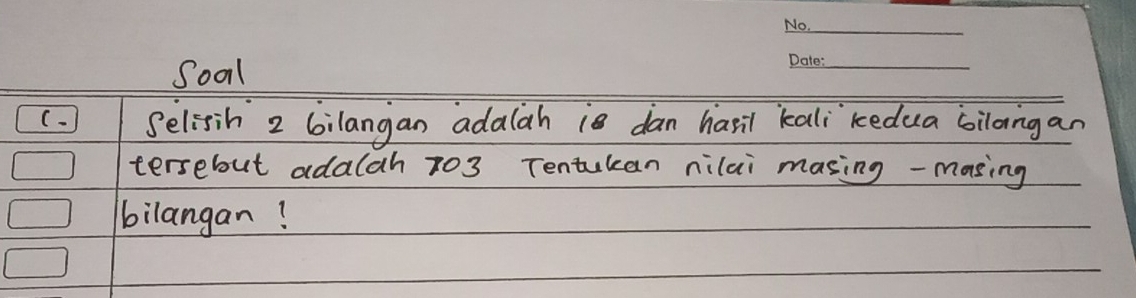 No.
Date:
Soal
1. Selisih 2 bilangan adalah 18 dan hasil kali kedua bilangan
tersebut adalah 703 Tentukan nilai masing - masing
bilangan !